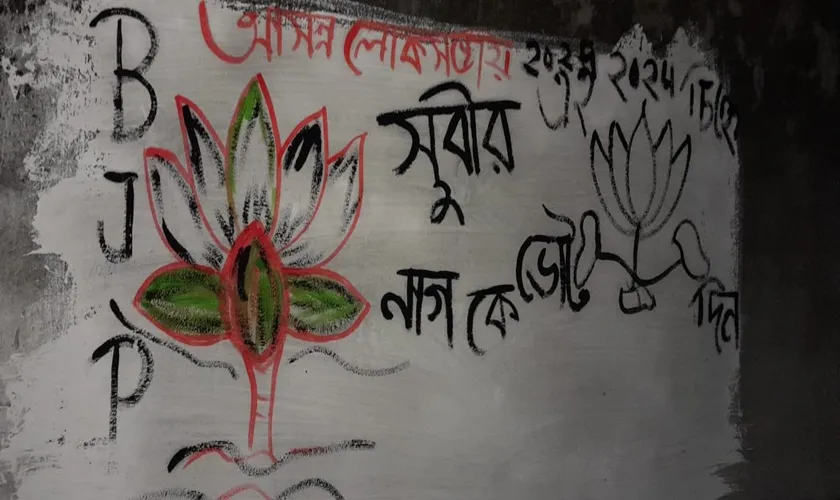 B
J
P
আসন্ন লোকসভায় ২০২৪ এই ২০২৪ চিহ্নে
সুবীর
নাগ কে ভোট দিন